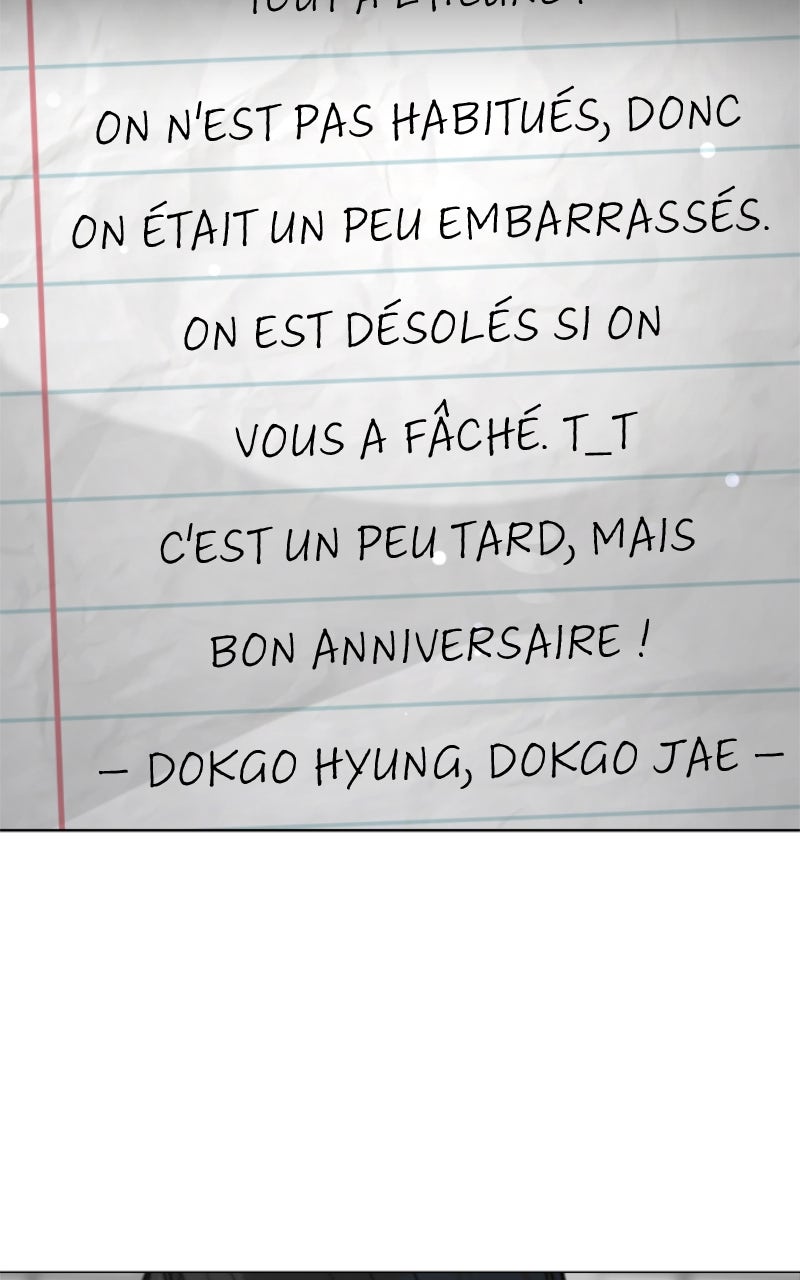 ON N'EST PAS HABITUÉS, DONC
ON ÉTAIT UN PEU EMBARRASSÉS.
ON EST DÉSOLÉS SI ON
VOUS A FÂCHÉ. T_T
C'EST UN PEU TARD, MAIS
BON ANNIVERSAIRE !
— DOKGO HYUNG, DOKGO JAE —